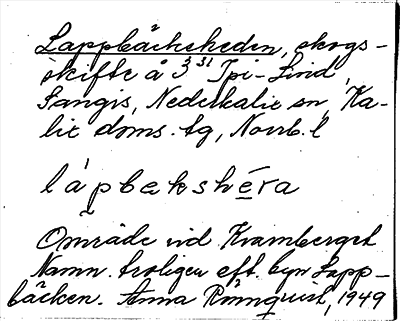 Lappbäcksheden, skogs-
skifte å 3 31 Spi-Lind,
Sangis, Nederkalix sn, Ka-
lix doms. tg, Norrb. l
lápbekshéra
Område vid Kvamberget
Namn troligen eft. byn Lapp-
bäcken. Anna Rönnquist, 1949